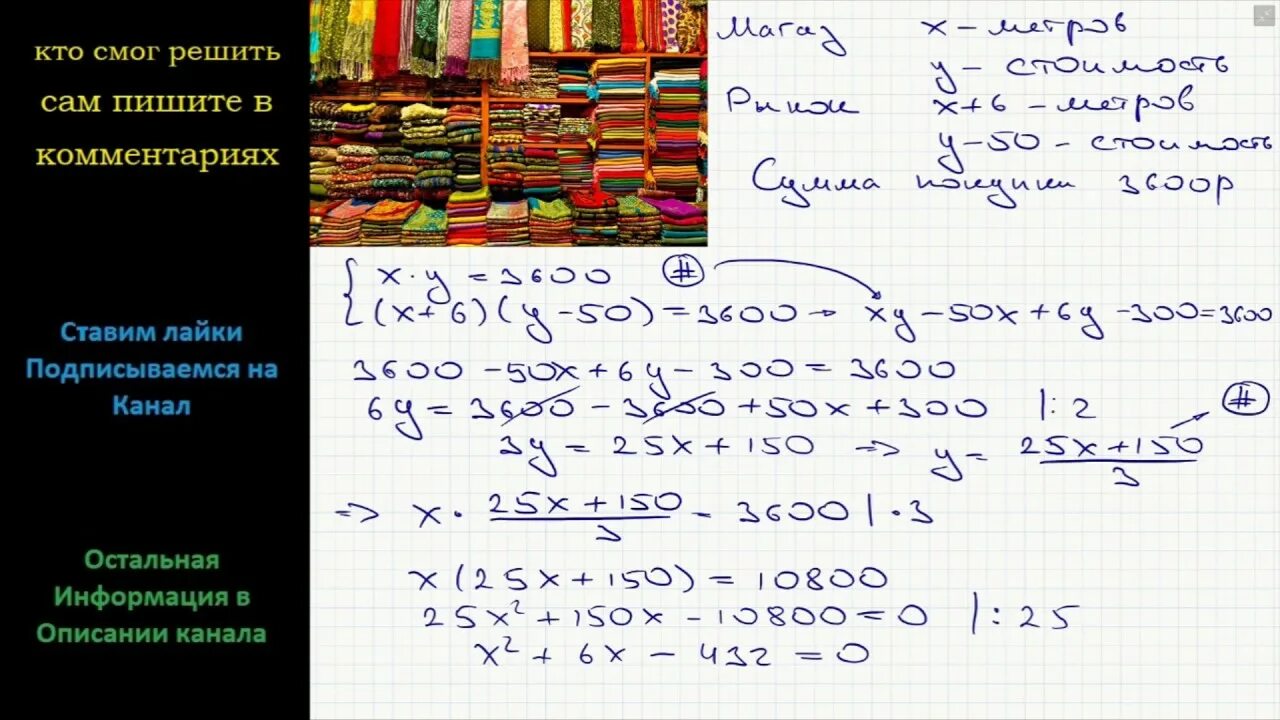 кто смог решить
сам пишите в
комментариях
Ставим лайки
Подписываемся на
Канал
Остальная
Информация в
Описании канала
Магаз x – метров
y – стоимость
Рынок x+6 – метров
y–50 – стоимость
Сумма покупки 3600р
{ x·y = 3600 #
(x+6)(y–50) = 3600 → xy – 50x + 6y – 300 = 3600
3600 – 50x + 6y – 300 = 3600
6y = 3600 – 3600 + 50x + 300 |:2 #
3y = 25x + 150 => y = (25x+150)/3
=> x · (25x + 150)/3 = 3600 |·3
x(25x + 150) = 10800
25x² + 150x – 10800 = 0 |:25
x² + 6x – 432 = 0